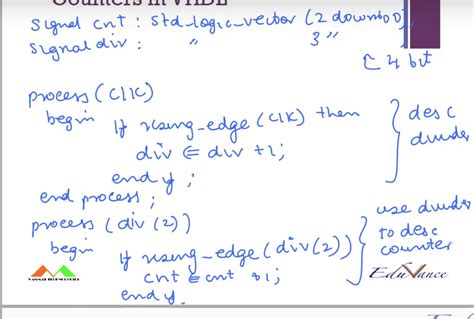 Counters in VHDL
signal cnt : std_logic_vector (2 downto 0);
signal div : " 3 "
4 bit
process (clk)
begin if rising_edge (clk) then
div <= div +1;
end if ;
end process ;
desc
divider
process (div (2))
begin if rising_edge (div(2))
cnt <= cnt +1;
end if.
use divider
to desc
counter
EduVance